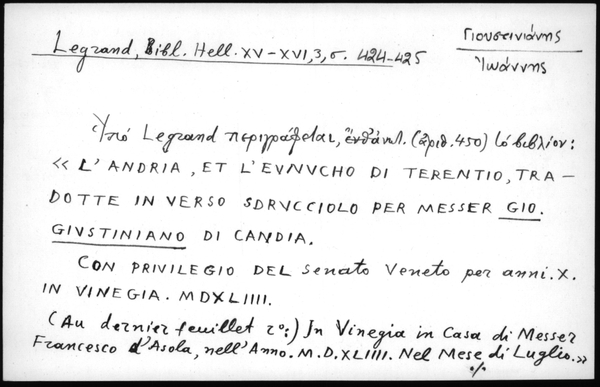 Legrand, Bibl. Hell. XV-XVI, 3, σ. 424-425
Γιουστινιάνης
Ἰωάννης
Ὑπό Legrand περιγράφεται, ἔνθ'ἀνωτ. (ἀριθ. 450) τό βιβλίον:
« L'ANDRIA, ET L'EVNVCHO DI TERENTIO, TRA-
DOTTE IN VERSO SDRVCCIOLO PER MESSER GIO.
GIVSTINIANO DI CANDIA.
CON PRIVILEGIO DEL Senato Veneto per anni. X.
IN VINEGIA. MDXLIIII.
(Au dernier feuillet rº:) In Vinegia in Casa di Messer
Francesco d'Asola, nell'Anno. M.D.XLIIII. Nel Mese di Luglio.»
·/·